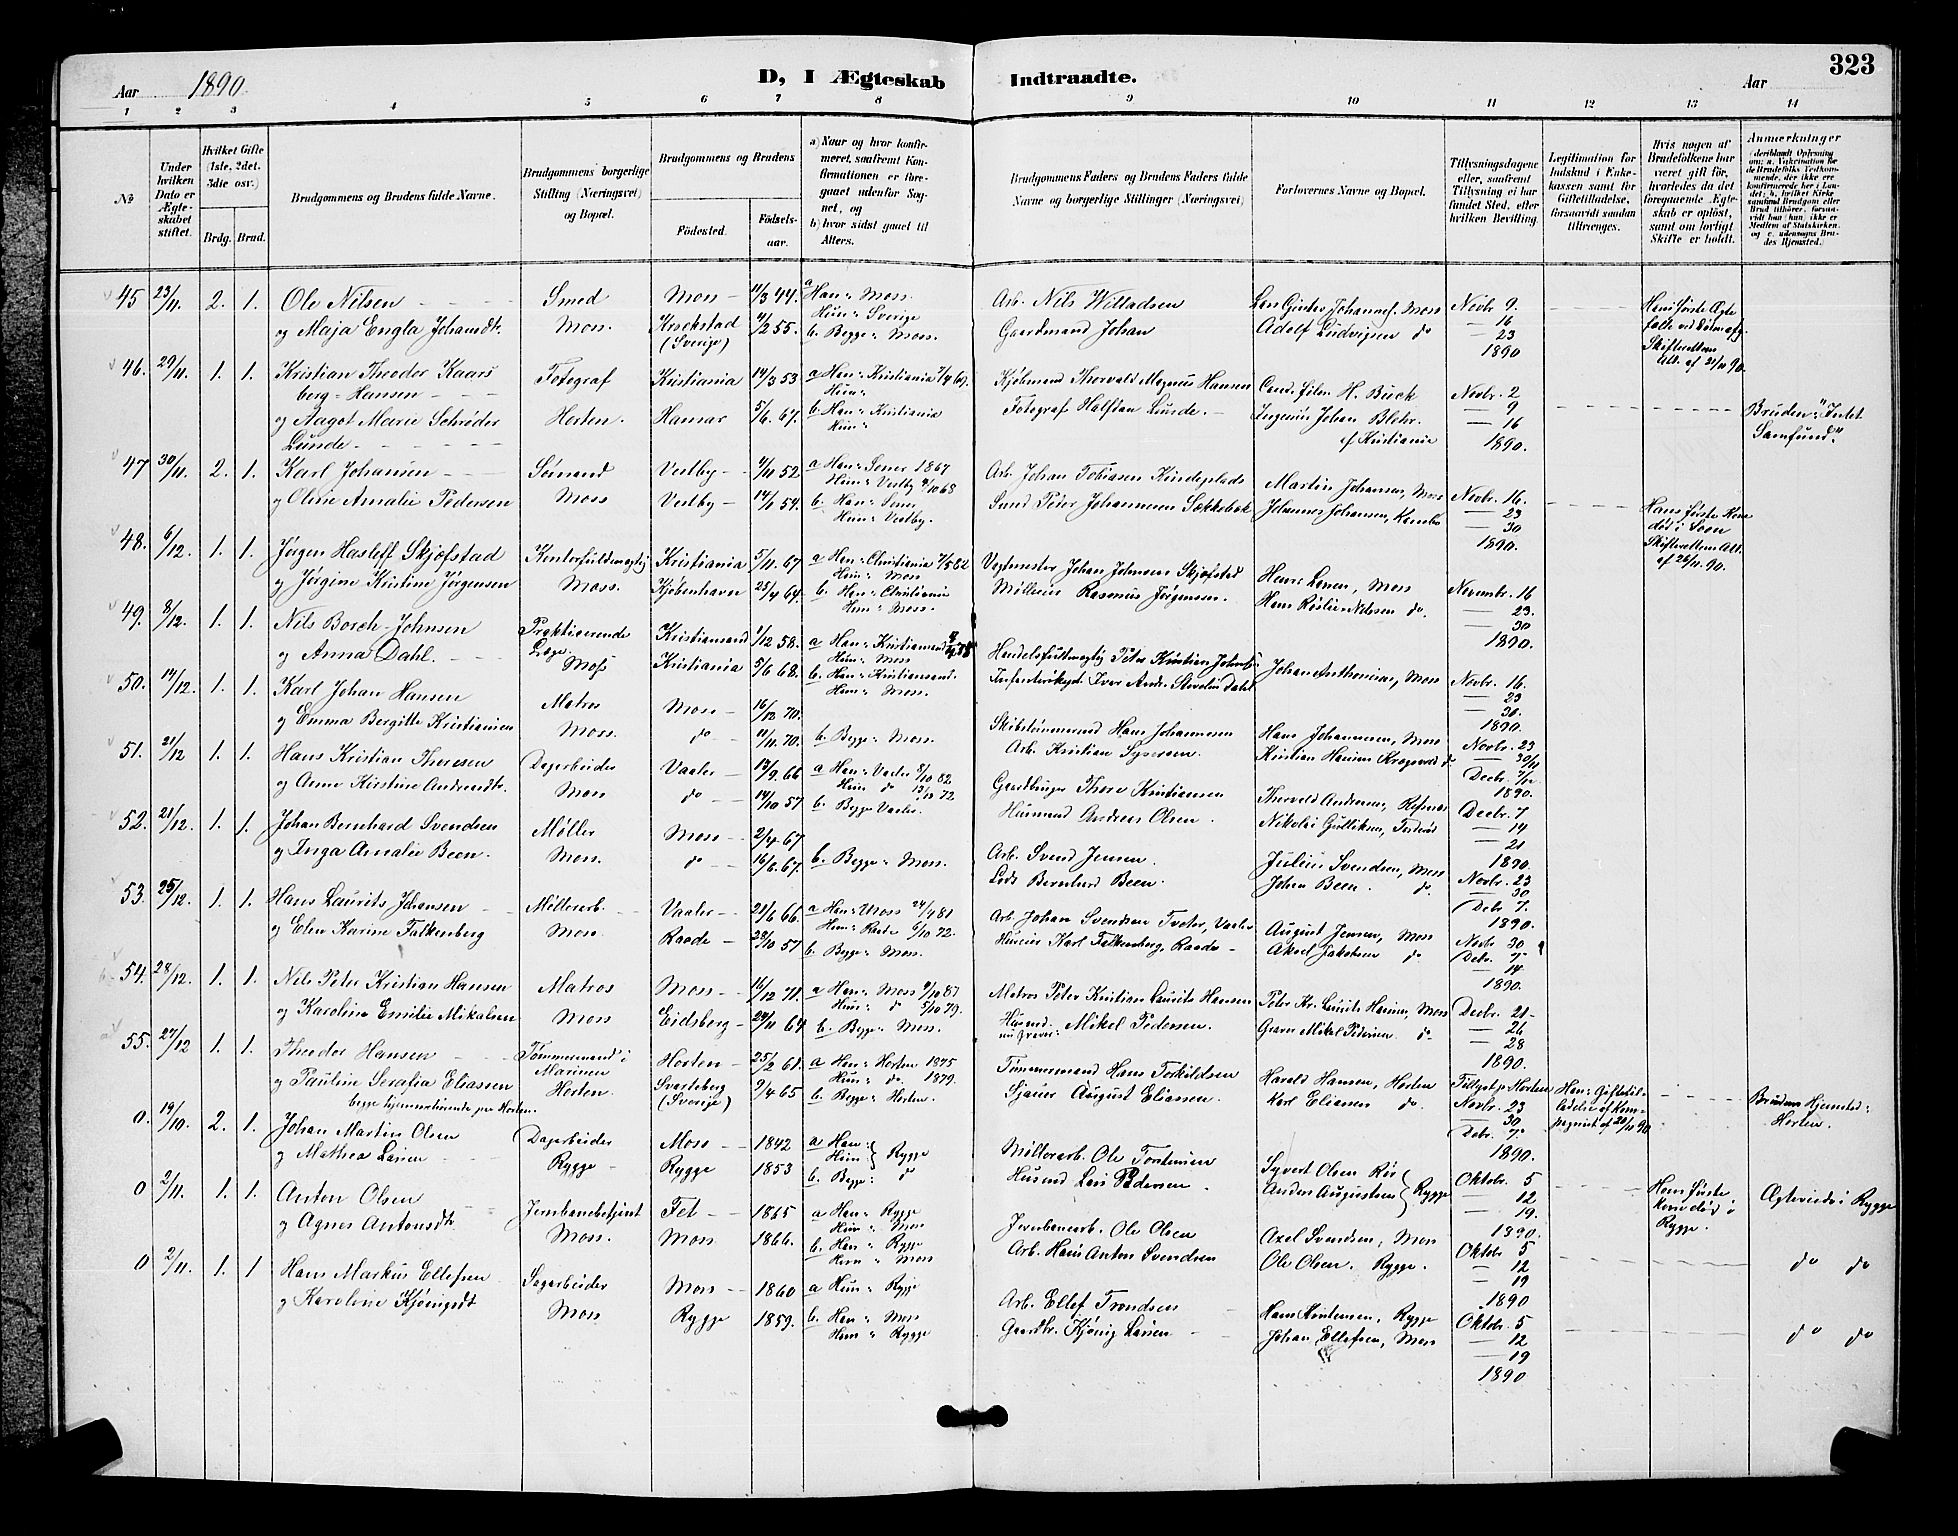 323
Aar 1890. D, I Ægteskab Indtraadte. Aar
1 2 3 4 5 6 7 8 9 10 11 12 13 14
No
Under hvilken Dato er Ægteskabet stiftet.
Hvilket Gifte (1ste, 2det, 3die osv.)
Brdg. Brud.
Brudgommens og Brudens fulde Navne.
Brudgommens borgerlige Stilling (Næringsvei) og Bopæl.
Brudgommens og Brudens
Fødested. Fødselsaar.
a) Naar og hvor konfirmeret, saafremt Konfirmationen er foregaaet udenfor Sognet, og
b) hvor sidst gaaet til Alters.
Brudgommens Faders og Brudens Faders fulde Navne og borgerlige Stillinger (Næringsvei)
Forlovernes Navne og Bopæl.
Tillysningsdagene eller, saafremt Tillysning ei har fundet Sted, efter hvilken Bevilling.
Legitimation for Indskud i Enkekassen samt for Giftetilladelse, forsaavidt saadan tiltrænges.
Hvis nogen af Brudefolkene har været gift før, hvorledes da det foregaaende Ægteskab er opløst, samt om lovligt Skifte er holdt.
Anmerkninger
45 23/11. 2. 1. Ole Nilsen Smed Moss 11/3 44. a Han: Moss. Arb. Nils Willadsen Novbr. 9.
og Maja Engla Johansdt. Moss. Krokstad (Sverige) 4/2 55. Hun: Sverige b. Begge: Moss. Gaardmand Johan Adolf Ludvigsen do — 16 — 23 1890
46. 29/11. 1. 1. Kristian Theodor Kaarsberg-Hansen Fotograf Kristiania 14/3 53 a Han: Kristiania Hun: Kjøbmand Thorvald Magnus Hansen Cand. filos H. Buck Novbr. 2
og Aagot Marie Schrøder Lunde Horten. Hamar 5/6. 67. b. Han: Kristiania Hun: Fotograf Halfdan Lunde. Ingeniør Johan Blehr. af Kristiania — 9 — 16 1890. Bruden: "Intet Samfund".
47 30/11. 2. 1. Karl Johansen Sømand Vestby 4/11 52 a Han: Soner 1867 Hun: Vestby 4/10 68 Arb. Johan Tobiasen Martin Johansen, Moss Novbr. 16.
og Oline Amalie Pedersen Moss Vestby 14/1 54. b. Han: Soner Hun: Vestby. Johannes Johansen, Kambo — 23 — 30 1890.
48. 6/12. 1. 1. Jørgen Hasleff Skjøfstad Kontorfuldmægtig Kristiania 5/11. 67 a Han: Christiania 7/5 82 Hun: Moss Vagtmester Johan Johnsen Skjøfstad Hans Larsen, Moss Novembr. 16
og Jørgine Kristine Jørgensen Moss. Kjøbenhavn 25/4 64. b. Han: Christiania Hun: Moss. Rasmus Jørgensen. Nilsen do. — 23. — 30 1890.
49. 8/12. 1. 1. Nils Borch-Johnsen Praktiserende Læge Kristiansand 1/12 58. a Han: Kristiansand Hun: Moss Handelsfuldmægtig Peter Kristian Johnsen Johan Anthonisen, Moss Novbr. 16.
og Anna Dahl. Moss Kristiania 5/6 68. b. Han: Kristiansand. Hun: Moss. — 23 — 30. 1890
50. 14/12. 1. 1. Karl Johan Hansen Matros Moss 16/12 70. Skibstømmermand Hans Johannesen Hans Johannesen, Moss Novbr. 23
og Emma Bergitte Kristiansen Moss. do 11/11. 70. b. Begge: Moss. Arb. Kristian Syversen. Kristian Hansen — 30/11 Decbr. 7/12 1890.
51. 21/12 1. 1. Hans Kristian Thoresen Dagarbeider Vaaler 13/9. 66 a Han: Vaaler 8/10 82 Hun do 13/10 72 Gaardbruger Thore Kristiansen Thorvald Andersen, Refsnes Decbr. 7
og Anne Kirstine Andreasdt. Moss do 14/10 57 b. Begge Vaaler. Husmand Andreas Olsen. Nikolai Gulliksen, — 14 — 21 1890.
52. 21/12. 1. 1. Johan Bernhard Svendsen Møller Moss 2/4 67 Arb. Svend Jensen. Julius Svendsen, Moss Novbr. 23
og Inga Amalie Been. Moss. do 16/6. 67. b. Begge: Moss. Lods Bernhard Been. Johan Been. do. — 30 Debr. 7. 1890.
53. 25/12. 1. 1. Hans Laurits Johansen Møllerarb. Vaaler 21/6 66 a Han: Moss 24/4 81 Hun: Raade 6/10 72. Arb. Johan Svendsen Tveter, Vaaler August Jensen, Moss Novbr. 30
og Elen Karine Falkenberg Moss. Raade 28/10 57 b. Begge: Moss. Karl Falkenberg, Raade Aksel Jakobsen do. Debr. 7. — 14 1890.
54. 28/12. 1. 1. Nils Peter Kristian Hansen Matros Moss 16/12 71. a Han: Moss 9/10 87 Hun: do 5/10 79. Matros Peter Kristian Laurits Hansen Peter Kr. Laurits Hansen, Moss Decbr. 21
og Karoline Emilie Mikalsen Moss Eidsberg 24/11 64 b. Begge: Moss. Husmd. Mikel Pedersen. Graver Mikel Pedersen do — 26 — 28 1890.
55. 27/12 1. 1. Theodor Hansen Tømmermand i Marinen Horten 25/2 61. a Han: Horten 1875 Hun: do. 1879. Tømmermand Hans Torkildsen Harald Hansen, Horten Tillyst p. Horten Han: Giftetilladelse af Kompagniet af 20/10 90
og Pauline Serafia Eliassen Horten. Svarteborg (Sverige) 9/4 65 b. Begge: Horten. Sjauer August Eliassen. Karl Eliassen do. Novbr. 23 — 30 Debr. 7. 1890. Brudens Hjemsted: Horten.
begge hjemmehørende paa Horten.
0. 19/10. 2. 1. Johan Martin Olsen Dagarbeider Moss 1842 a Han: Hun: Rygge Møllerarb. Ole Torstensen Syvert Olsen Oktobr. 5
og Mathea Larsen Rygge Rygge 1853 b. Begge: do Husmd Lars Pedersen. Anders Augustsen Rygge — 12 — 19. 1890. Hans første kone død i Rygge. Ægteviede i Rygge
0 2/11. 1. 1. Anton Olsen Jernbanebetjent Fet 1865 a Han: Rygge Hun: Moss Jernbanearb. Ole Olsen Axel Svendsen, Moss Oktobr. 5
og Agnes Antonsdt. Moss. Moss 1866. b. Han: Rygge Hun: Moss Arb. Hans Anton Svendsen Ole Olsen. Rygge. — 12 — 19 1890 do do
0 2/11. 1. 1 Hans Markus Ellefsen Sagarbeider Moss 1860 a Hun: Rygge Arb. Ellef Trondsen Hans Rygge Oktobr. 5
og Karoline Kjønigsdt Moss Rygge 1859. b. Han: Moss Hun: Rygge Gaardbr. Kjønig Larsen Johan Ellefsen, Moss — 12 — 19 1890 do do